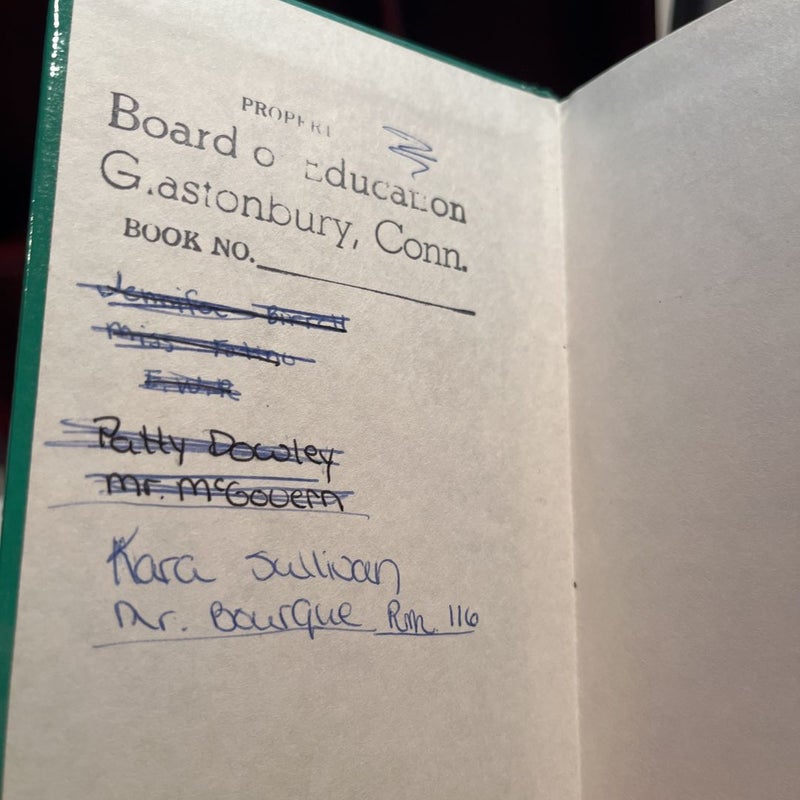 PROPERT
Board o Education
Glastonbury, Conn.
BOOK NO.
Jennifer
Miss
E.W.R
Patty Dowley
Mr. McGovern
Kara Sullivan
Mr. Bourque Rm. 116